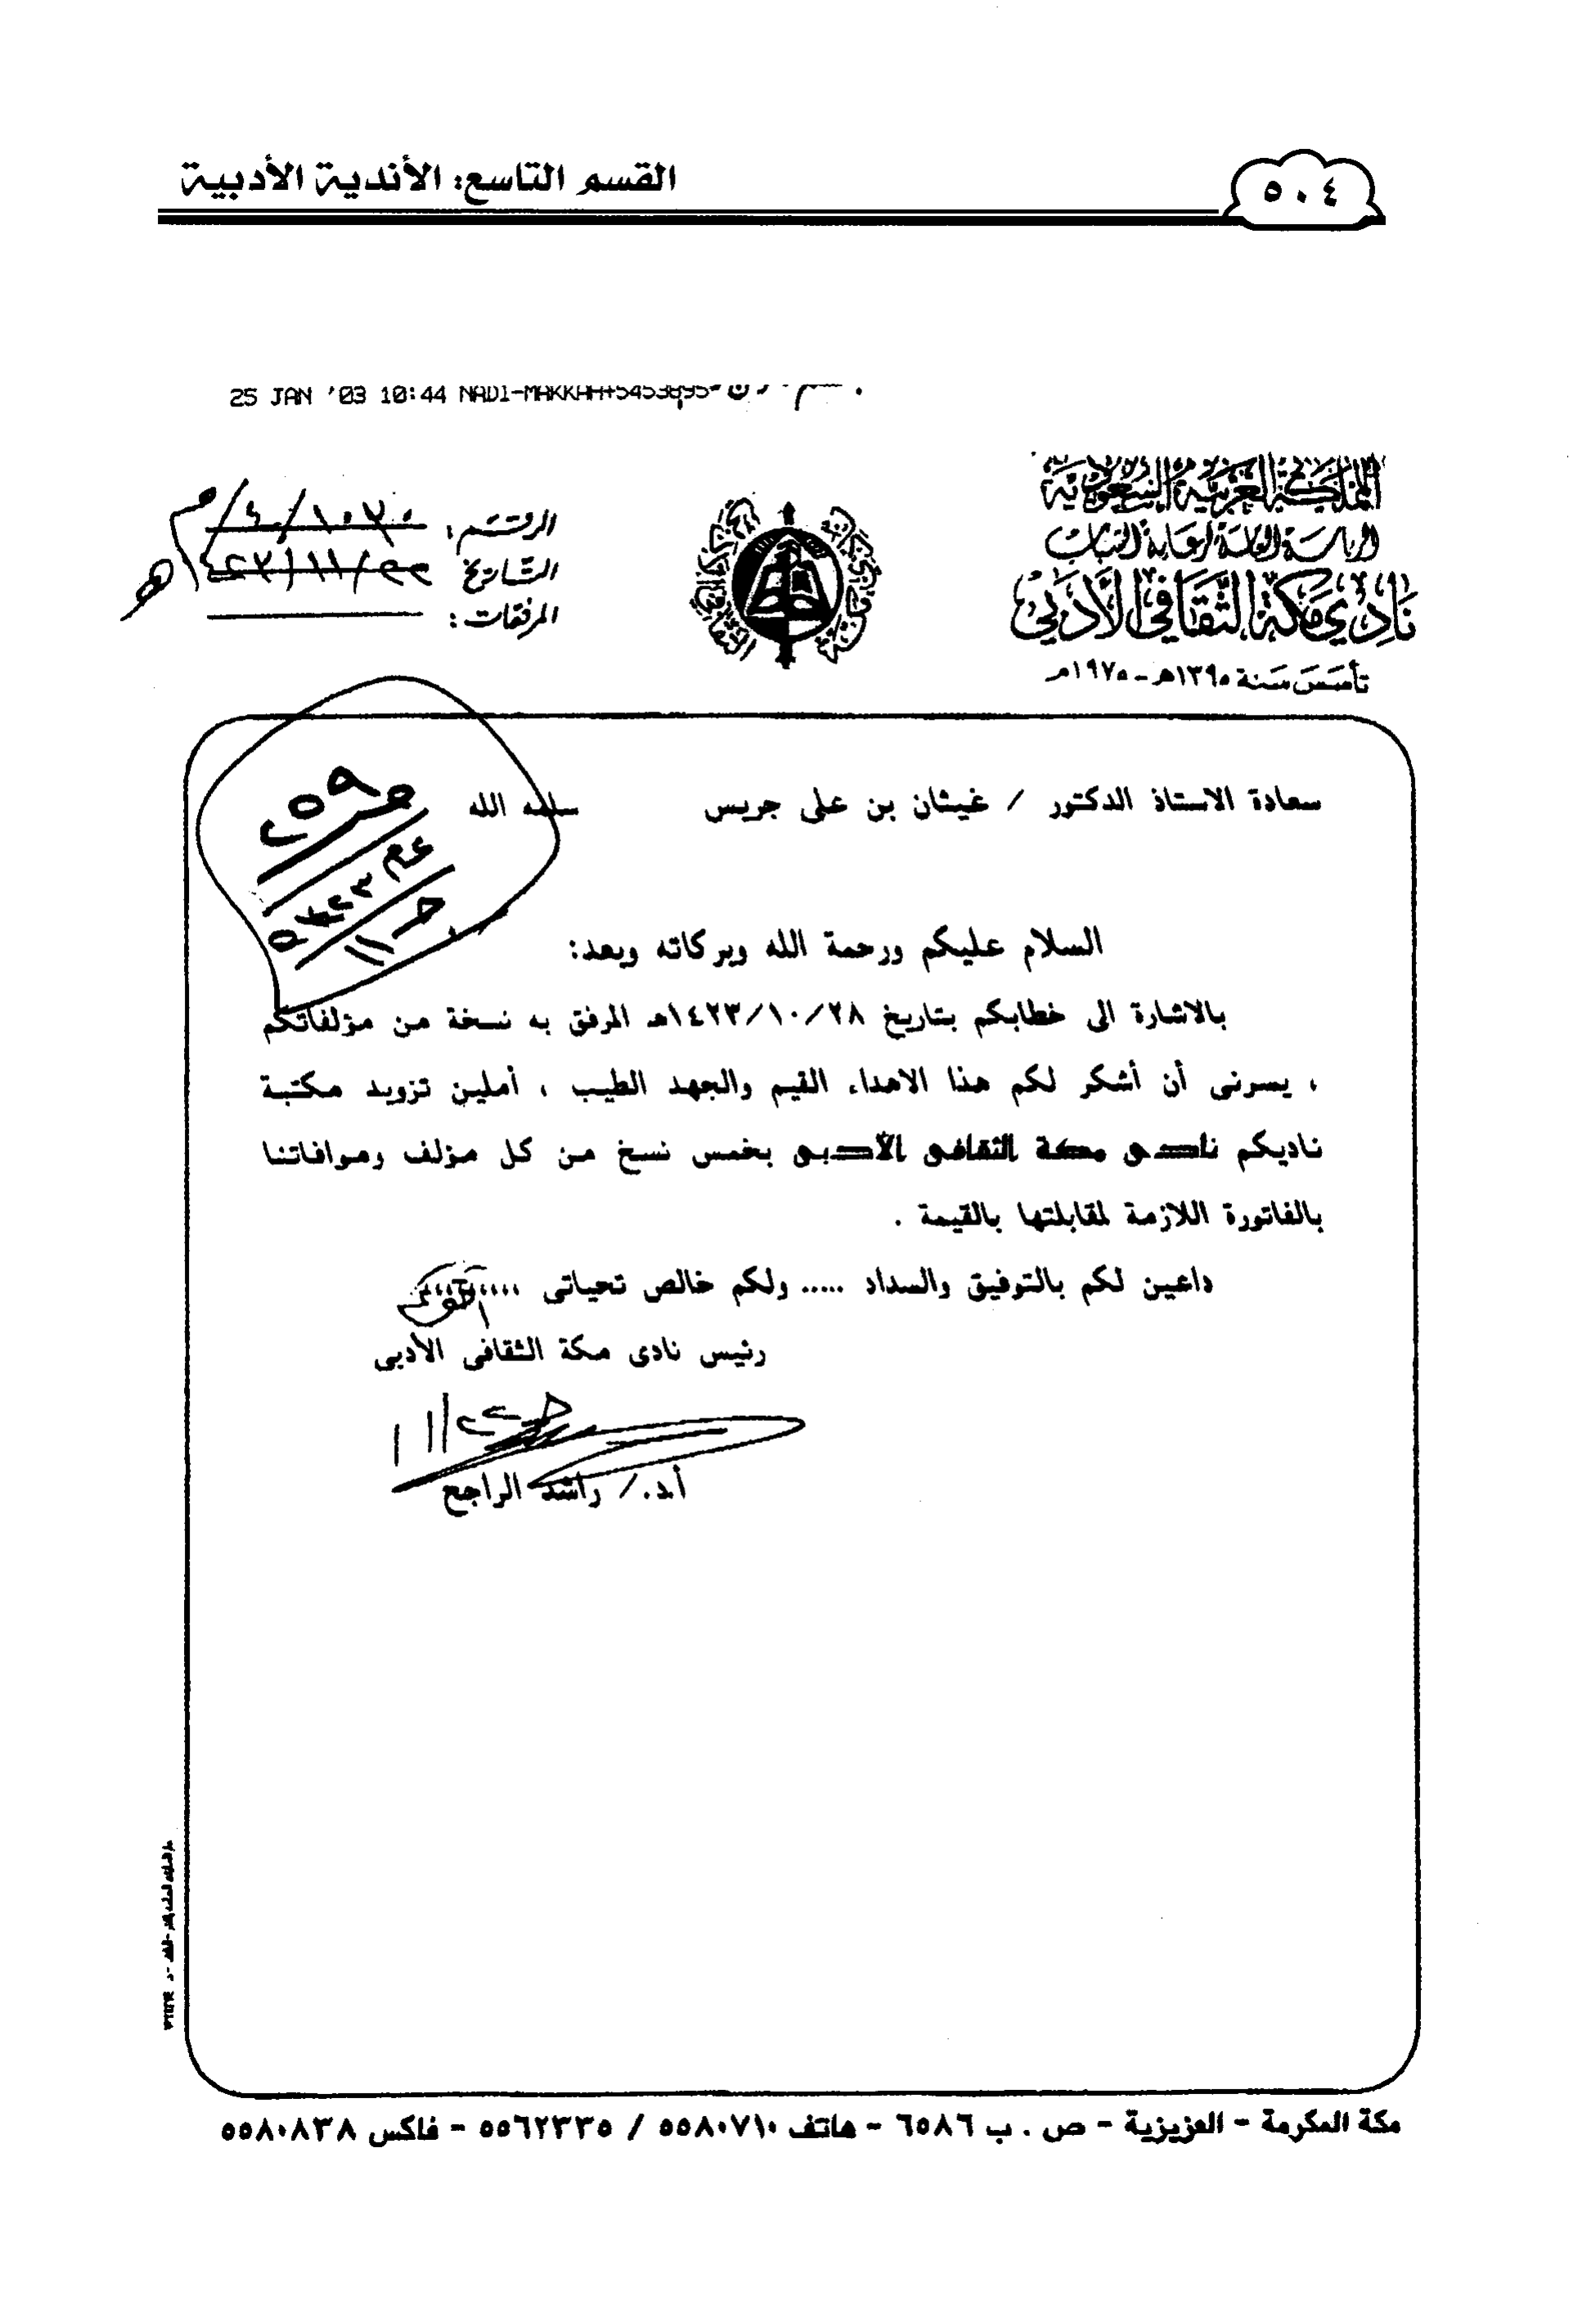 القسم التاسع: الأندية الأدبية
٥٠٤
25 JAN '03 10:44 NADI-MAKKAH+5453895
المملكة العربية السعودية
الرئاسة العامة لرعاية الشباب
نادي مكة الثقافي الأدبي
تأسس سنة ١٣٩٥هـ - ١٩٧٥م
الرقم:
التاريخ
المرفقات:
سعادة الاستاذ الدكتور / غيثان بن على جريس سلمه الله
السلام عليكم ورحمة الله وبركاته وبعد:
بالاشارة الى خطابكم بتاريخ ١٤٢٣/١٠/٢٨هـ المرفق به نسخة من مؤلفاتكم
، يسرنى أن أشكر لكم هذا الاهداء القيم والجهد الطيب ، أملين تزويد مكتبة
ناديكم نادى مكة الثقافى الأدبى بخمس نسخ من كل مؤلف وموافاتنا
بالفاتورة اللازمة لمقابلتها بالقيمة .
داعين لكم بالتوفيق والسداد ..... ولكم خالص تحياتى
رئيس نادى مكة الثقافى الأدبى
أ.د./ راشد الراجح
مكة المكرمة - العزيزية - ص . ب ٦٥٨٦ - هاتف ٥٥٨٠٧١٠ / ٥٥٦٢٣٣٥ - فاكس ٥٥٨٠٨٣٨